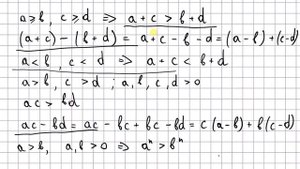 a > b, c > d ⇒ a + c > b + d
(a + c) - (b + d) = a + c - b - d = (a - b) + (c - d)
a < b, c < d ⇒ a + c < b + d
a > b, c > d ; a, b, c, d > 0
ac > bd
ac - bd = ac - bc + bc - bd = c (a - b) + b (c - d)
a > b, a, b > 0 ⇒ aⁿ > bⁿ